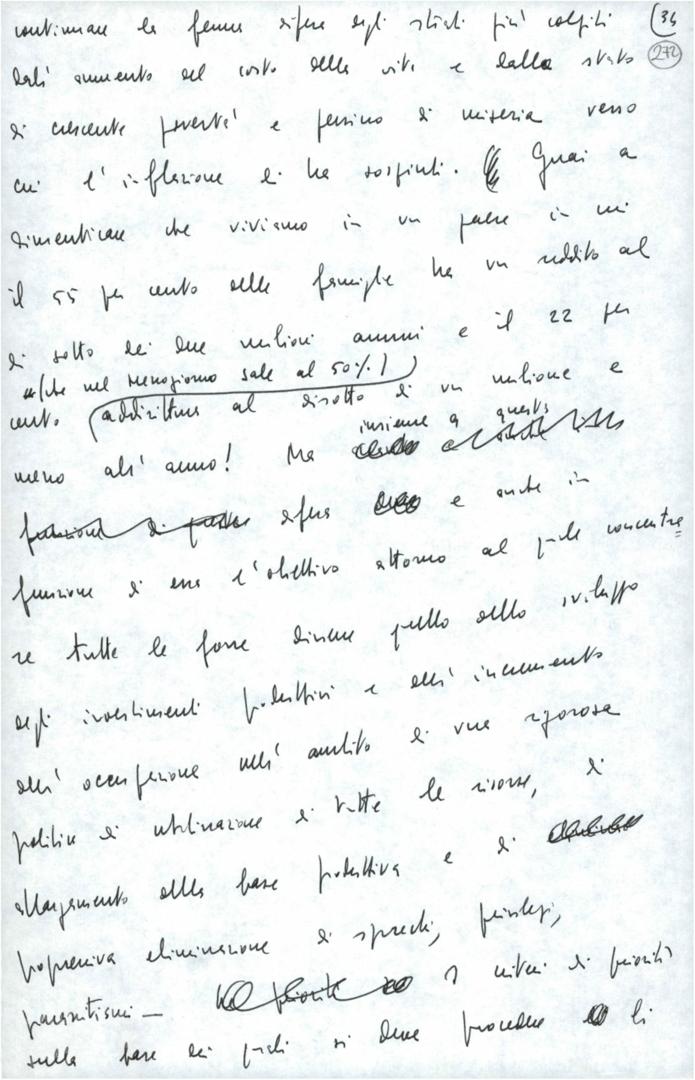 continuare la ferma difesa degli strati più colpiti (34
dall'aumento del costo della vita e dallo stato 272
di crescente povertà e persino di miseria verso
cui l'inflazione li ha sospinti. Guai a
dimenticare che viviamo in un paese in cui
il 55 per cento delle famiglie ha un reddito al
di sotto dei due milioni annui e il 22 per
(che nel mezzogiorno sale al 50%!)
cento addirittura al disotto di un milione e
insieme a questa
meno all'anno! Ma
difesa e anche in
funzione di essa l'obiettivo attorno al quale concentra
re tutte le forze diviene quello dello sviluppo
degli investimenti produttivi e dell'incremento
dell'occupazione nell'ambito di una rigorosa
politica di utilizzazione di tutte le risorse, di
allargamento della base produttiva e di
progressiva eliminazione di sprechi, privilegi,
parassitismi — I criteri di priorità
sulla base dei quali si deve procedere li